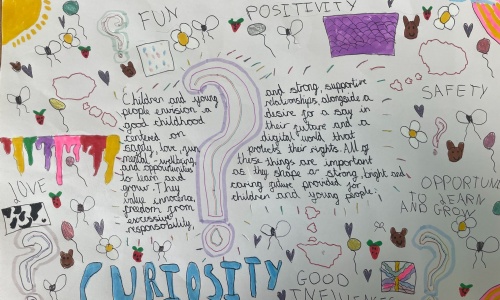 FUN
POSITIVITY
Children and young
people envision a
good childhood
centered on
safety, love, fun,
mental wellbeing,
and opportunities
to learn and
grow. They
value innocence,
freedom from
excessive
responsability,
and strong, supportive
relationships, alongside a
desire for a say in
their future and a
digital world that
protects their rights. All of
these things are important
as they shape a strong, bright and
caring future provided for
children and young people.
SAFETY
LOVE
OPPORTUN
TO LEARN
AND GROW
CURIOSITY
GOOD